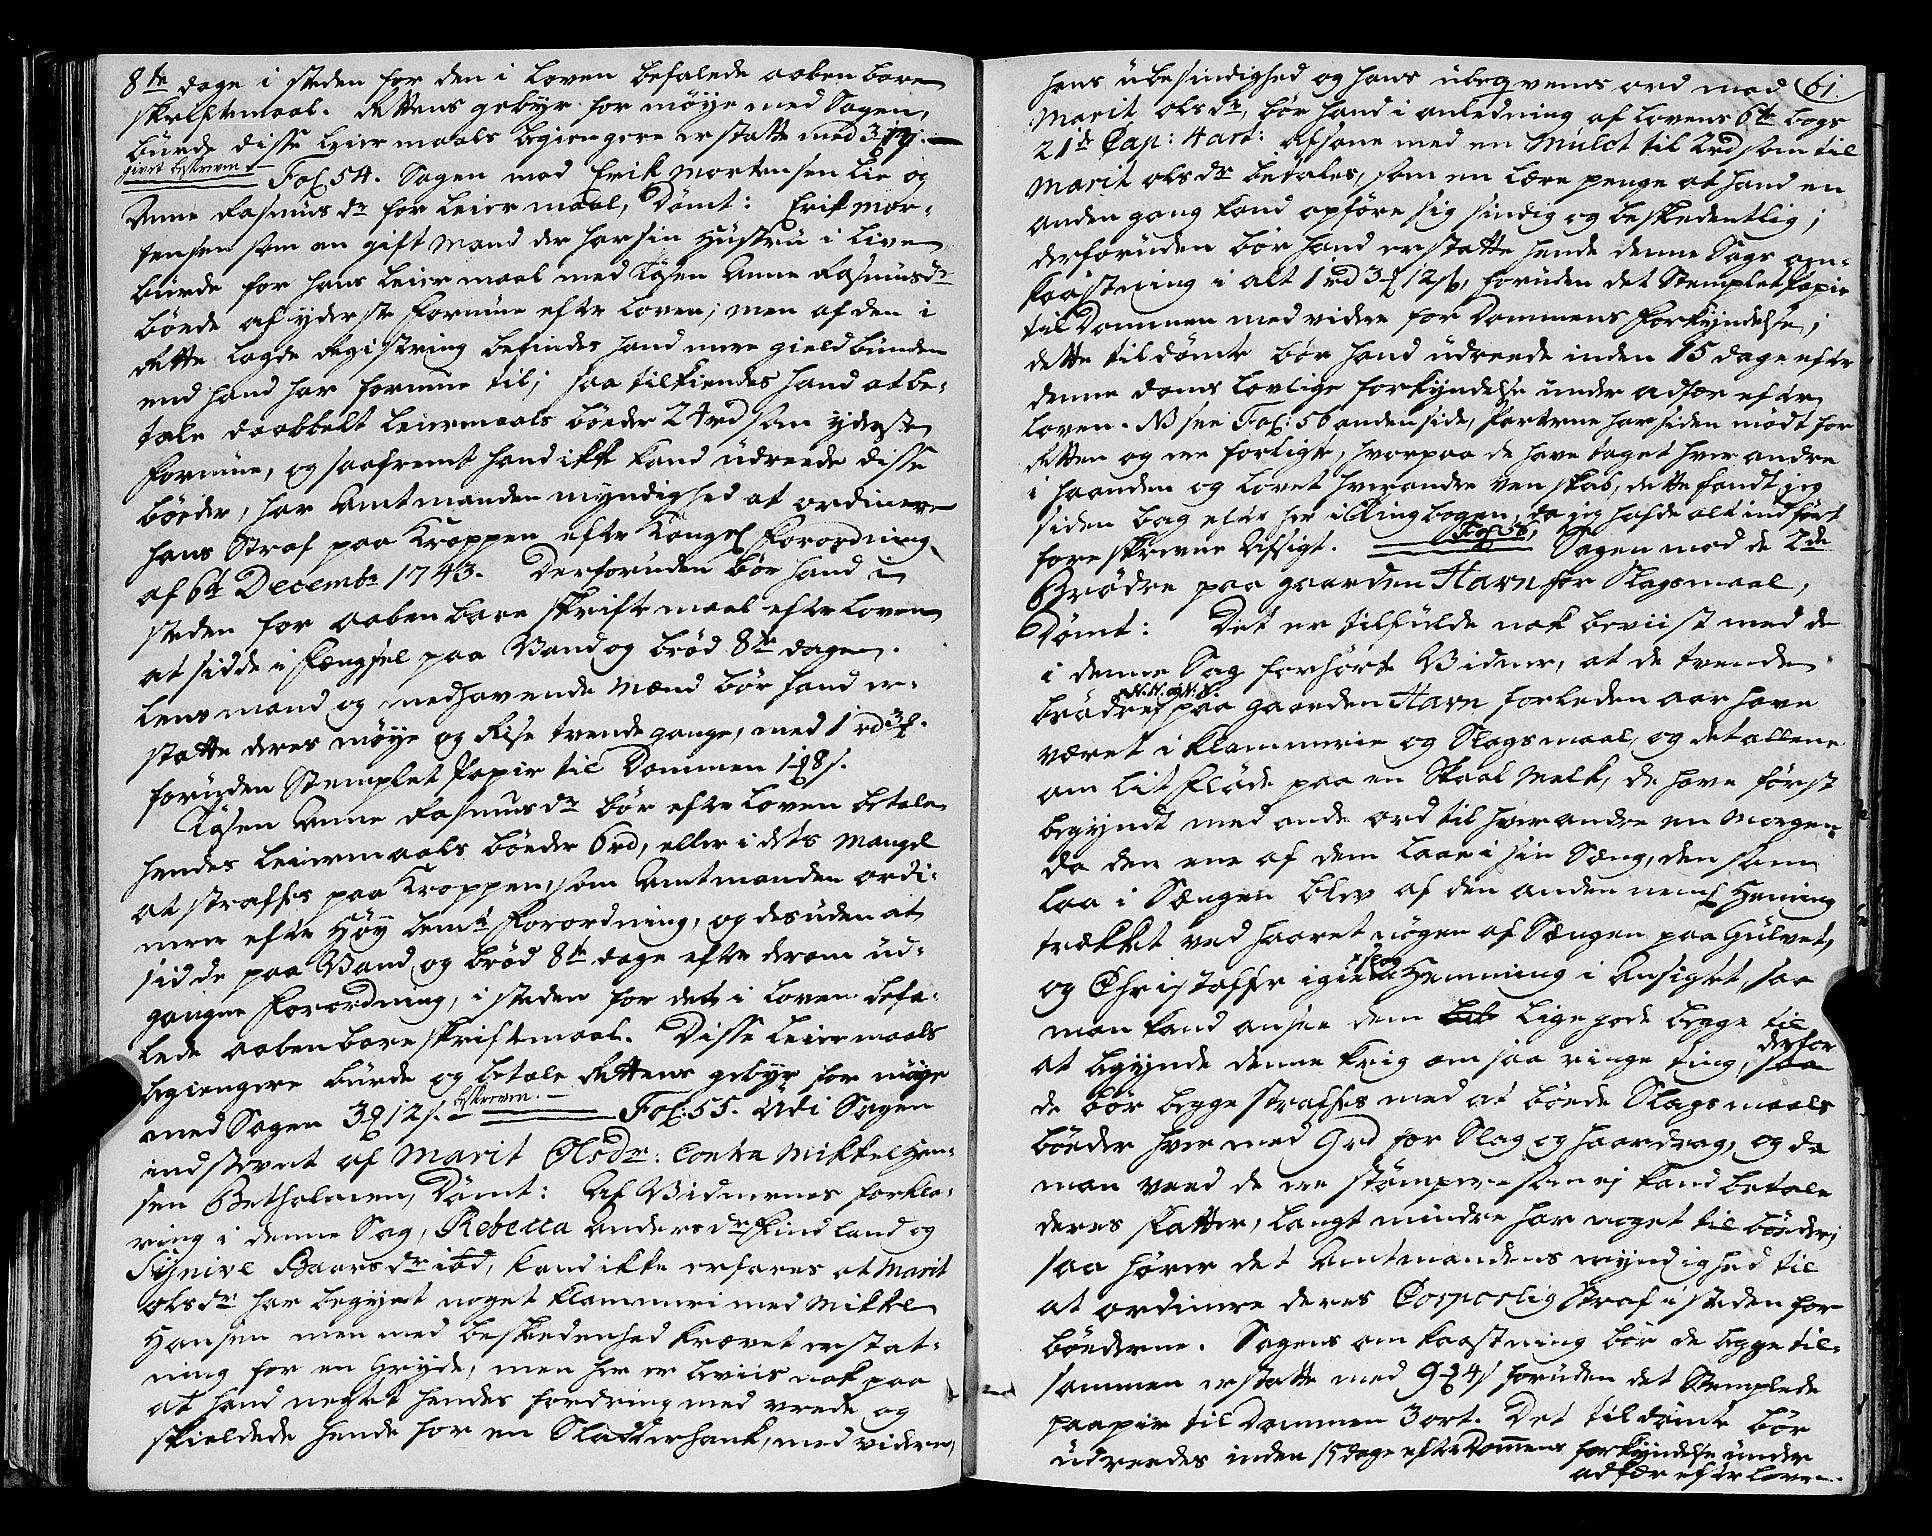 8te dage i steden for den i Loven befalede aabenbare
skriftemaal. Rettens gebyr for møye med Sagen,
burde disse leiermaals begiengere erstatte med 3
givet beskreven Fol 54. Sagen mod Erik Mortensen Lie og
Anne Rasmusdr for Leiermaal, Dømt: Erik Mor-
tensen som en gift Mand der har sin Hustru i Live
burde for hans Leiermaal med Anne Rasmusdr
bøede af yderste formue efter Loven; men af den i
Rette lagde Registring befindes hand mere gieldbunden
end hand har formue til; saa tilkiendes hand at be-
tale doobbelt Leiermaals bøeder 24 rd som yderste
formue, og saafremt hand ikke kand udreede disse
bøeder, har Amtmanden myndighed at ordinere
hans Straf paa Kroppen efter Kongel Forordning
af 6te Decembr 1743. Derforuden bør hand i
steden for aabenbare skriftemaal efter Loven
at sidde i Fængsel paa Vand og brød 8te dage.
Lensmand og medhavende Mænd bør hand er-
statte deres møye og Reise trende gange, med 1 rd 3
foruden Stemplet Papir til Dommen 1 8 s.
Anne Rasmusdr bør efter Loven betale
hendes Leiermaals bøeder 6 rd, eller i dets Mangel
at straffes paa Kroppen, som Amtmanden ordi-
nerer efter Høy bemte Forordning, og desuden at
sidde paa Vand og brød 8te dage efter derom ud-
gangne Forordning, i steden for dets i Loven befa-
lede aabenbare skriftemaal. Disse Leiermaals
begiengere burde og betale Rettens gebyr for møye
med Sagen 3 12 s. beskreven. Fol: 55. Udi Sagen
indstevnt af Marit Olsdr: Contra Mikkel Han-
sen Betholmen, Dømt: Af Vidnernes forkla-
ring i denne Sag, Rebecca Andersdr Findland og
Baarsdr ibd, kand ikke erfares at Marit
Olsdr har begyndt noget klammeri med Mikkel
Hansen men med beskedenhed krævet erstat-
ning for en Gryde, men her er beviis nok paa
at hand negtet hendes fordring med vrede og
skieldede hende for en Sladderhank, med videre,
hans ubesindighed og hans ubeqvems ord mod 61
Marit Olsdr, bør hand i anledning af Lovens 6te bogs
21de Cap: 4 art: afsone med en Mulct til 2 rd som til
Marit Olsdr betales, som en lære penge at hand en
anden gang kand opføre sig sindig og beskedentlig;
derforuden bør hand erstatte hende denne Sags om-
kaastning i alt 1 rd 3 12 s, foruden det Stemplet Papir
til Dommen med videre for Dommens Forkyndelse;
dette tildømte bør hand udreede inden 15 dage efter
denne doms lovlige forkyndelse under adfær efter
Loven. NB see Fol: 56 anden side, Parterne har siden mødt for
Retten og ere forligte, hvorpaa de have taget hver andre
i haanden og lovet hverandre Venskab, dette fandt jeg
siden bag efter her i Tingbogen, da jeg hafde alt indført
foreskrevne Afsigt. Fol 56, Sagen mod de 2de
Brødre paa gaarden Havn for Slagsmaal,
Dømt: Det er tilfulde nok beviist med de
i denne Sag forhørte Vidner, at de tvende
brødre N. N. og N. N. paa gaarden Havn forleden aar have
været i klammerie og Slagsmaal, og det allene
om lit fløde paa en Skaal Melk, de have først
begyndt med onde ord til hverandre en Morgen
da den ene af dem laae i sin Sæng, den som
laa i Sængen blev af den anden neml Hemming
trækket ved haaret nøgen af Sængen paa Gulvet,
og Christoffer igien slog Hemming i Ansigtet, saa
man kand ansee dem lige gode begge til
at begynde denne krig om saa ringe ting, saa derfor
de bør begge straffes med at bøede Slagsmaals
bøeder hver med 9 rd for Slag og haardrag, og da
man veed de ere stømpere som ej kand betale
deres skatter, langt mindre har noget til bøeder,
saa hører det Amtmandens myndighed til
at ordinere deres Corporlig Straf i steden for
bøederne. Sagens om kaastning bør de begge til-
sammen erstatte med 9 4 s foruden det Stemplede
paapir til Dommen 3 ort. Det tildømte bør
udreedes inden 15 dage efter Dommens forkyndelse under
adfær efter Loven.